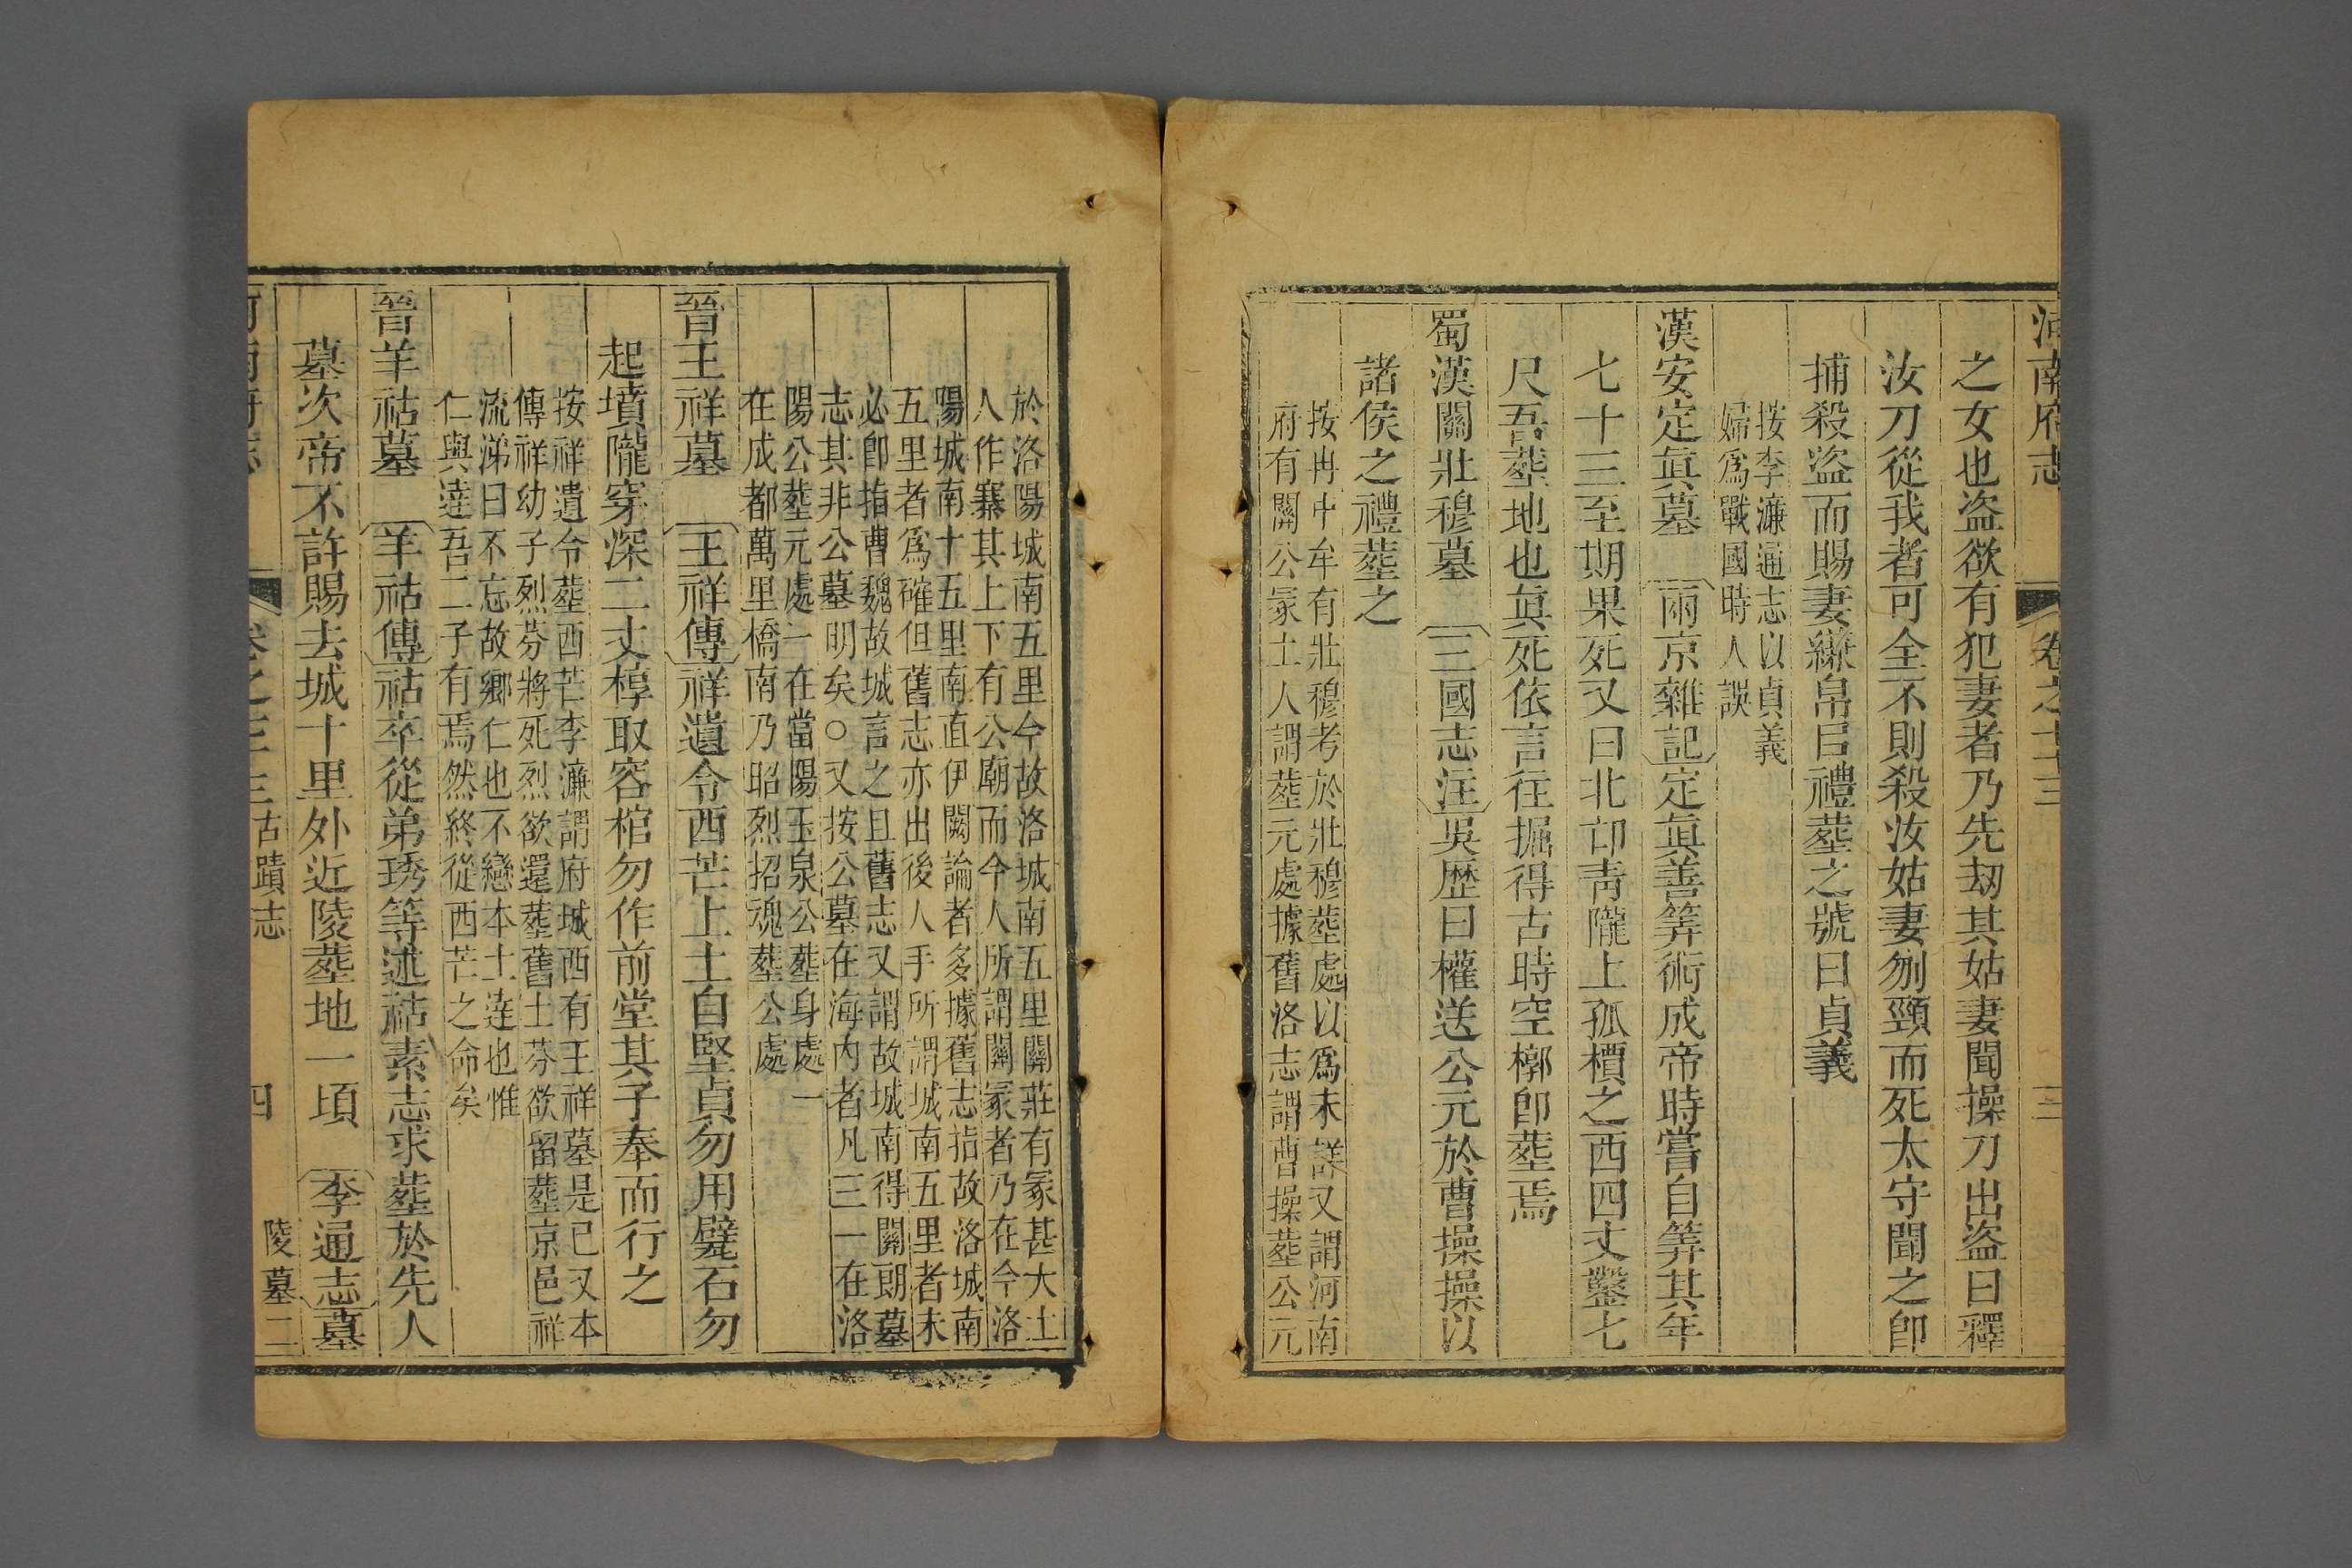 河南府志 卷之七十三 三
之女也盗欲有犯妻者乃先刼其姑妻聞操刀出盗曰釋
汝刀從我者可全不則殺汝姑妻刎頸而死太守聞之卽
捕殺盗而賜妻縑帛㠯禮塟之號曰貞義
按李濂通志以貞義
婦爲戰國時人誤
漢安定眞墓 兩京雜記定眞善筭術成帝時嘗自筭其年
七十三至期果死又曰北邙靑隴上孤檟之西四丈鑿七
尺吾塟地也眞死依言往掘得古時空槨卽塟焉
蜀漢關壯穆墓 三國志注吳歴曰權送公元於曹操操以
諸侯之禮塟之
按冉中牟有壯穆考於壯穆塟處以爲未詳又謂河南
府有關公冢土人謂塟元處據舊洛志謂曹操塟公元
於洛陽城南五里今故洛城南五里關莊有冢甚大土
人作寨其上下有公廟而今人所謂關冢者乃在今洛
陽城南十五里南直伊闕論者多據舊志拈故洛城南
五里者爲確但舊志亦出後人手所謂城南五里者未
必卽指曹魏故城言之且舊志又謂故城南得關朗墓
志其非公墓明矣○又按公墓在海内者凡三一在洛
陽公塟元處一在當陽玉泉公塟身處一
在成都萬里橋南乃昭烈招魂塟公處
晉王祥墓 王祥傳祥遺令西芒上土自堅貞勿用甓石勿
起墳隴穿深二丈椁取容棺勿作前堂其子奉而行之
按祥遺令塟西芒李濂謂府城西有王祥墓是已又本
傳祥幼子烈芬將死烈欲還塟舊土芬欲留塟京邑祥
流涕曰不忘故鄉仁也不戀本土達也惟
仁與達吾二子有焉然終從西芒之命矣
晉羊祜墓 羊祜傳祜卒從弟琇等述祜素志求塟於先人
墓次帝不許賜去城十里外近陵塟地一頃 李通志墓
河南府志 卷之 三古蹟志 四 陵墓二